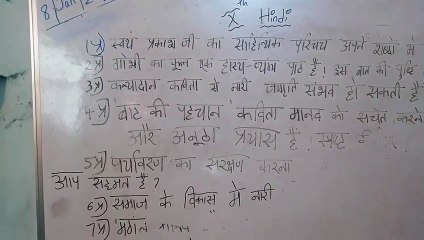 8 Jan
X th Hindi
1 प्र) स्वयं प्रकाश जी का साहित्यिक परिचय अपने शब्दों में
2 प्र) का एक हास्य-व्यंग्य पाठ है। इस बात की पुष्टि
3 प्र) कन्यादान कविता से नारी जागृति संभव हो सकती है
4 प्र) बाट की पहचान कविता मानव को सचेत करने
और अनूठा प्रयास है। स्पष्ट
5 प्र) पर्यावरण का संरक्षण करना
आप सहमत है?
6 प्र) समाज के विकास में नारी
7 प्र) मंगल